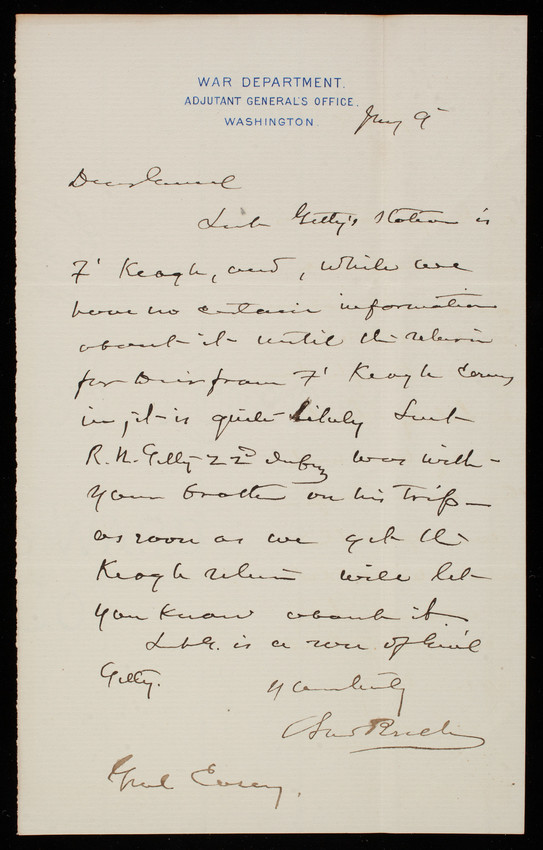 WAR DEPARTMENT.
ADJUTANT GENERAL'S OFFICE.
WASHINGTON.
Jany 9
Dear General
Lieut Getty's station is
Ft Keogh, and, while we
have no certain information
about it until the return
for Decr from Ft Keogh comes
in, it is quite likely Lieut
R. N. Getty 22d Infy was with
your brother on his trip—
as soon as we get the
Keogh return will let
you know about it
Lt G. is a son of Gen'l
Getty.
Yours truly
Genl Casey.